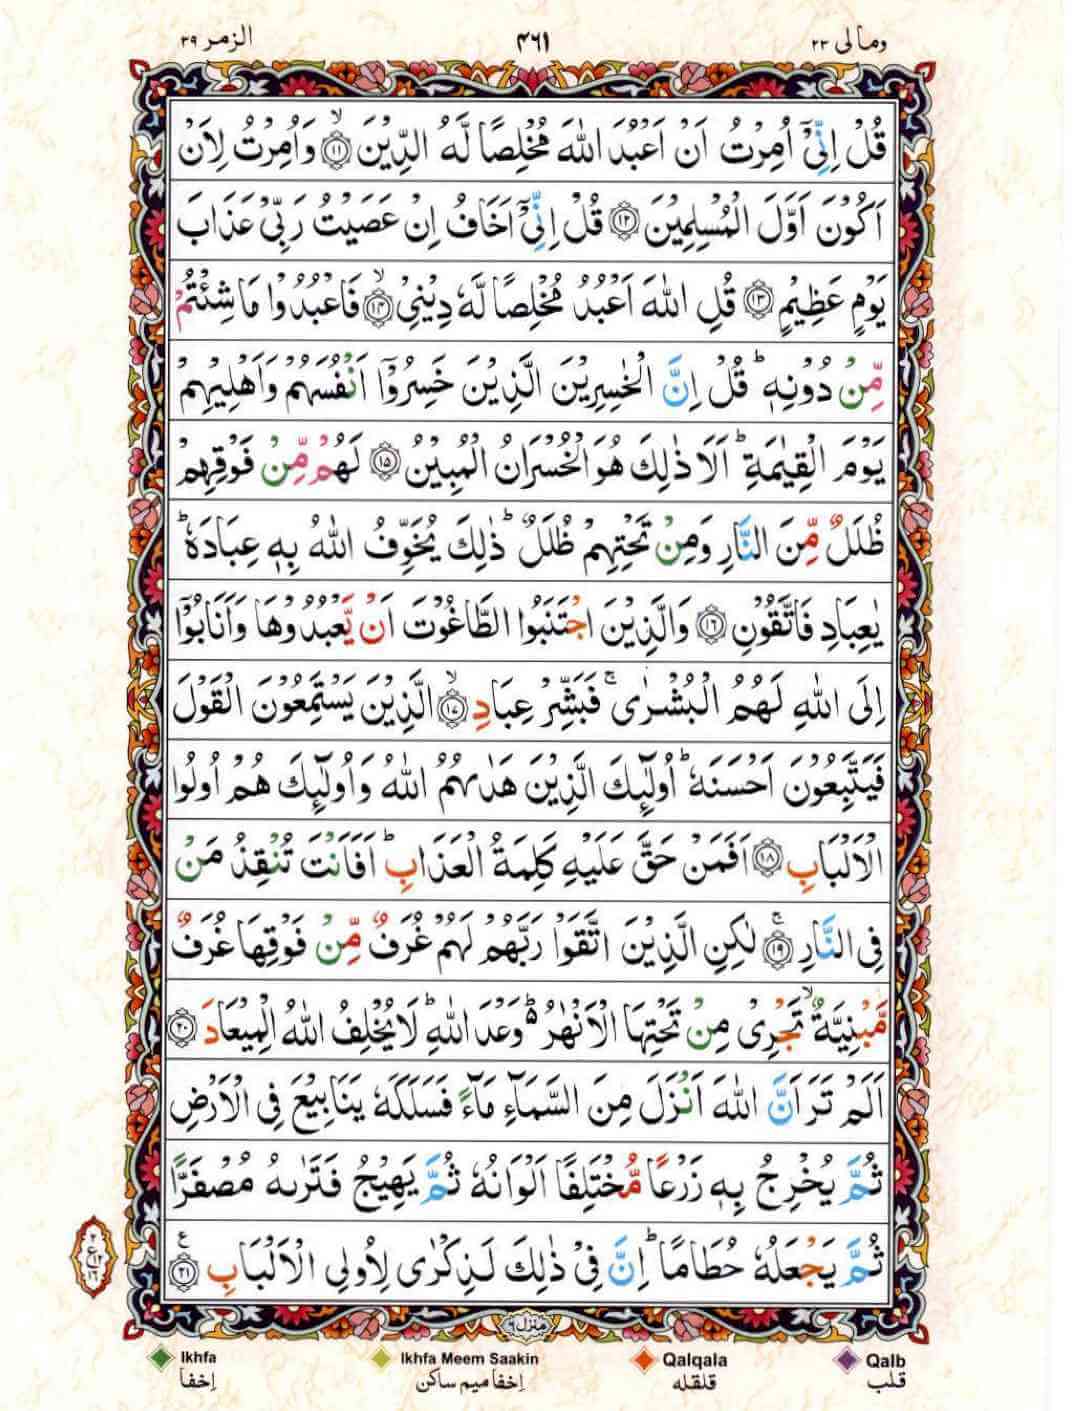 ومالی ۲۳ ۴۶۱ الزمر ۳۹
قُلْ اِنِّیْۤ اُمِرْتُ اَنْ اَعْبُدَ اللّٰهَ مُخْلِصًا لَّهُ الدِّیْنَ ﴿۱۱﴾ۙ وَاُمِرْتُ لِاَنْ
اَكُوْنَ اَوَّلَ الْمُسْلِمِیْنَ ﴿۱۲﴾ قُلْ اِنِّیْۤ اَخَافُ اِنْ عَصَیْتُ رَبِّیْ عَذَابَ
یَوْمٍ عَظِیْمٍ ﴿۱۳﴾ قُلِ اللّٰهَ اَعْبُدُ مُخْلِصًا لَّهٗ دِیْنِیْ ﴿۱۴﴾ۙ فَاعْبُدُوْا مَا شِئْتُمْ
مِّنْ دُوْنِهٖ ؕ قُلْ اِنَّ الْخٰسِرِیْنَ الَّذِیْنَ خَسِرُوْۤا اَنْفُسَهُمْ وَاَهْلِیْهِمْ
یَوْمَ الْقِیٰمَةِ ؕ اَلَا ذٰلِكَ هُوَ الْخُسْرَانُ الْمُبِیْنُ ﴿۱۵﴾ لَهُمْ مِّنْ فَوْقِهِمْ
ظُلَلٌ مِّنَ النَّارِ وَمِنْ تَحْتِهِمْ ظُلَلٌ ؕ ذٰلِكَ یُخَوِّفُ اللّٰهُ بِهٖ عِبَادَهٗ ؕ
یٰعِبَادِ فَاتَّقُوْنِ ﴿۱۶﴾ وَالَّذِیْنَ اجْتَنَبُوا الطَّاغُوْتَ اَنْ یَّعْبُدُوْهَا وَاَنَابُوْۤا
اِلَی اللّٰهِ لَهُمُ الْبُشْرٰی ۚ فَبَشِّرْ عِبَادِ ﴿۱۷﴾ۙ الَّذِیْنَ یَسْتَمِعُوْنَ الْقَوْلَ
فَیَتَّبِعُوْنَ اَحْسَنَهٗ ؕ اُولٰٓئِكَ الَّذِیْنَ هَدٰىهُمُ اللّٰهُ وَاُولٰٓئِكَ هُمْ اُولُوا
الْاَلْبَابِ ﴿۱۸﴾ اَفَمَنْ حَقَّ عَلَیْهِ كَلِمَةُ الْعَذَابِ ؕ اَفَاَنْتَ تُنْقِذُ مَنْ
فِی النَّارِ ﴿۱۹﴾ۚ لٰكِنِ الَّذِیْنَ اتَّقَوْا رَبَّهُمْ لَهُمْ غُرَفٌ مِّنْ فَوْقِهَا غُرَفٌ
مَّبْنِیَّةٌ ۙ تَجْرِیْ مِنْ تَحْتِهَا الْاَنْهٰرُ ؕ۬ وَعْدَ اللّٰهِ ؕ لَا یُخْلِفُ اللّٰهُ الْمِیْعَادَ ﴿۲۰﴾
اَلَمْ تَرَ اَنَّ اللّٰهَ اَنْزَلَ مِنَ السَّمَآءِ مَآءً فَسَلَكَهٗ یَنَابِیْعَ فِی الْاَرْضِ
ثُمَّ یُخْرِجُ بِهٖ زَرْعًا مُّخْتَلِفًا اَلْوَانُهٗ ثُمَّ یَهِیْجُ فَتَرٰىهُ مُصْفَرًّا
ثُمَّ یَجْعَلُهٗ حُطَامًا ؕ اِنَّ فِیْ ذٰلِكَ لَذِكْرٰی لِاُولِی الْاَلْبَابِ ﴿۲۱﴾ ع
منزل ۶
Ikhfa Ikhfa Meem Saakin Qalqala Qalb
اِخفا اِخفا میم ساکن قلقله قلب